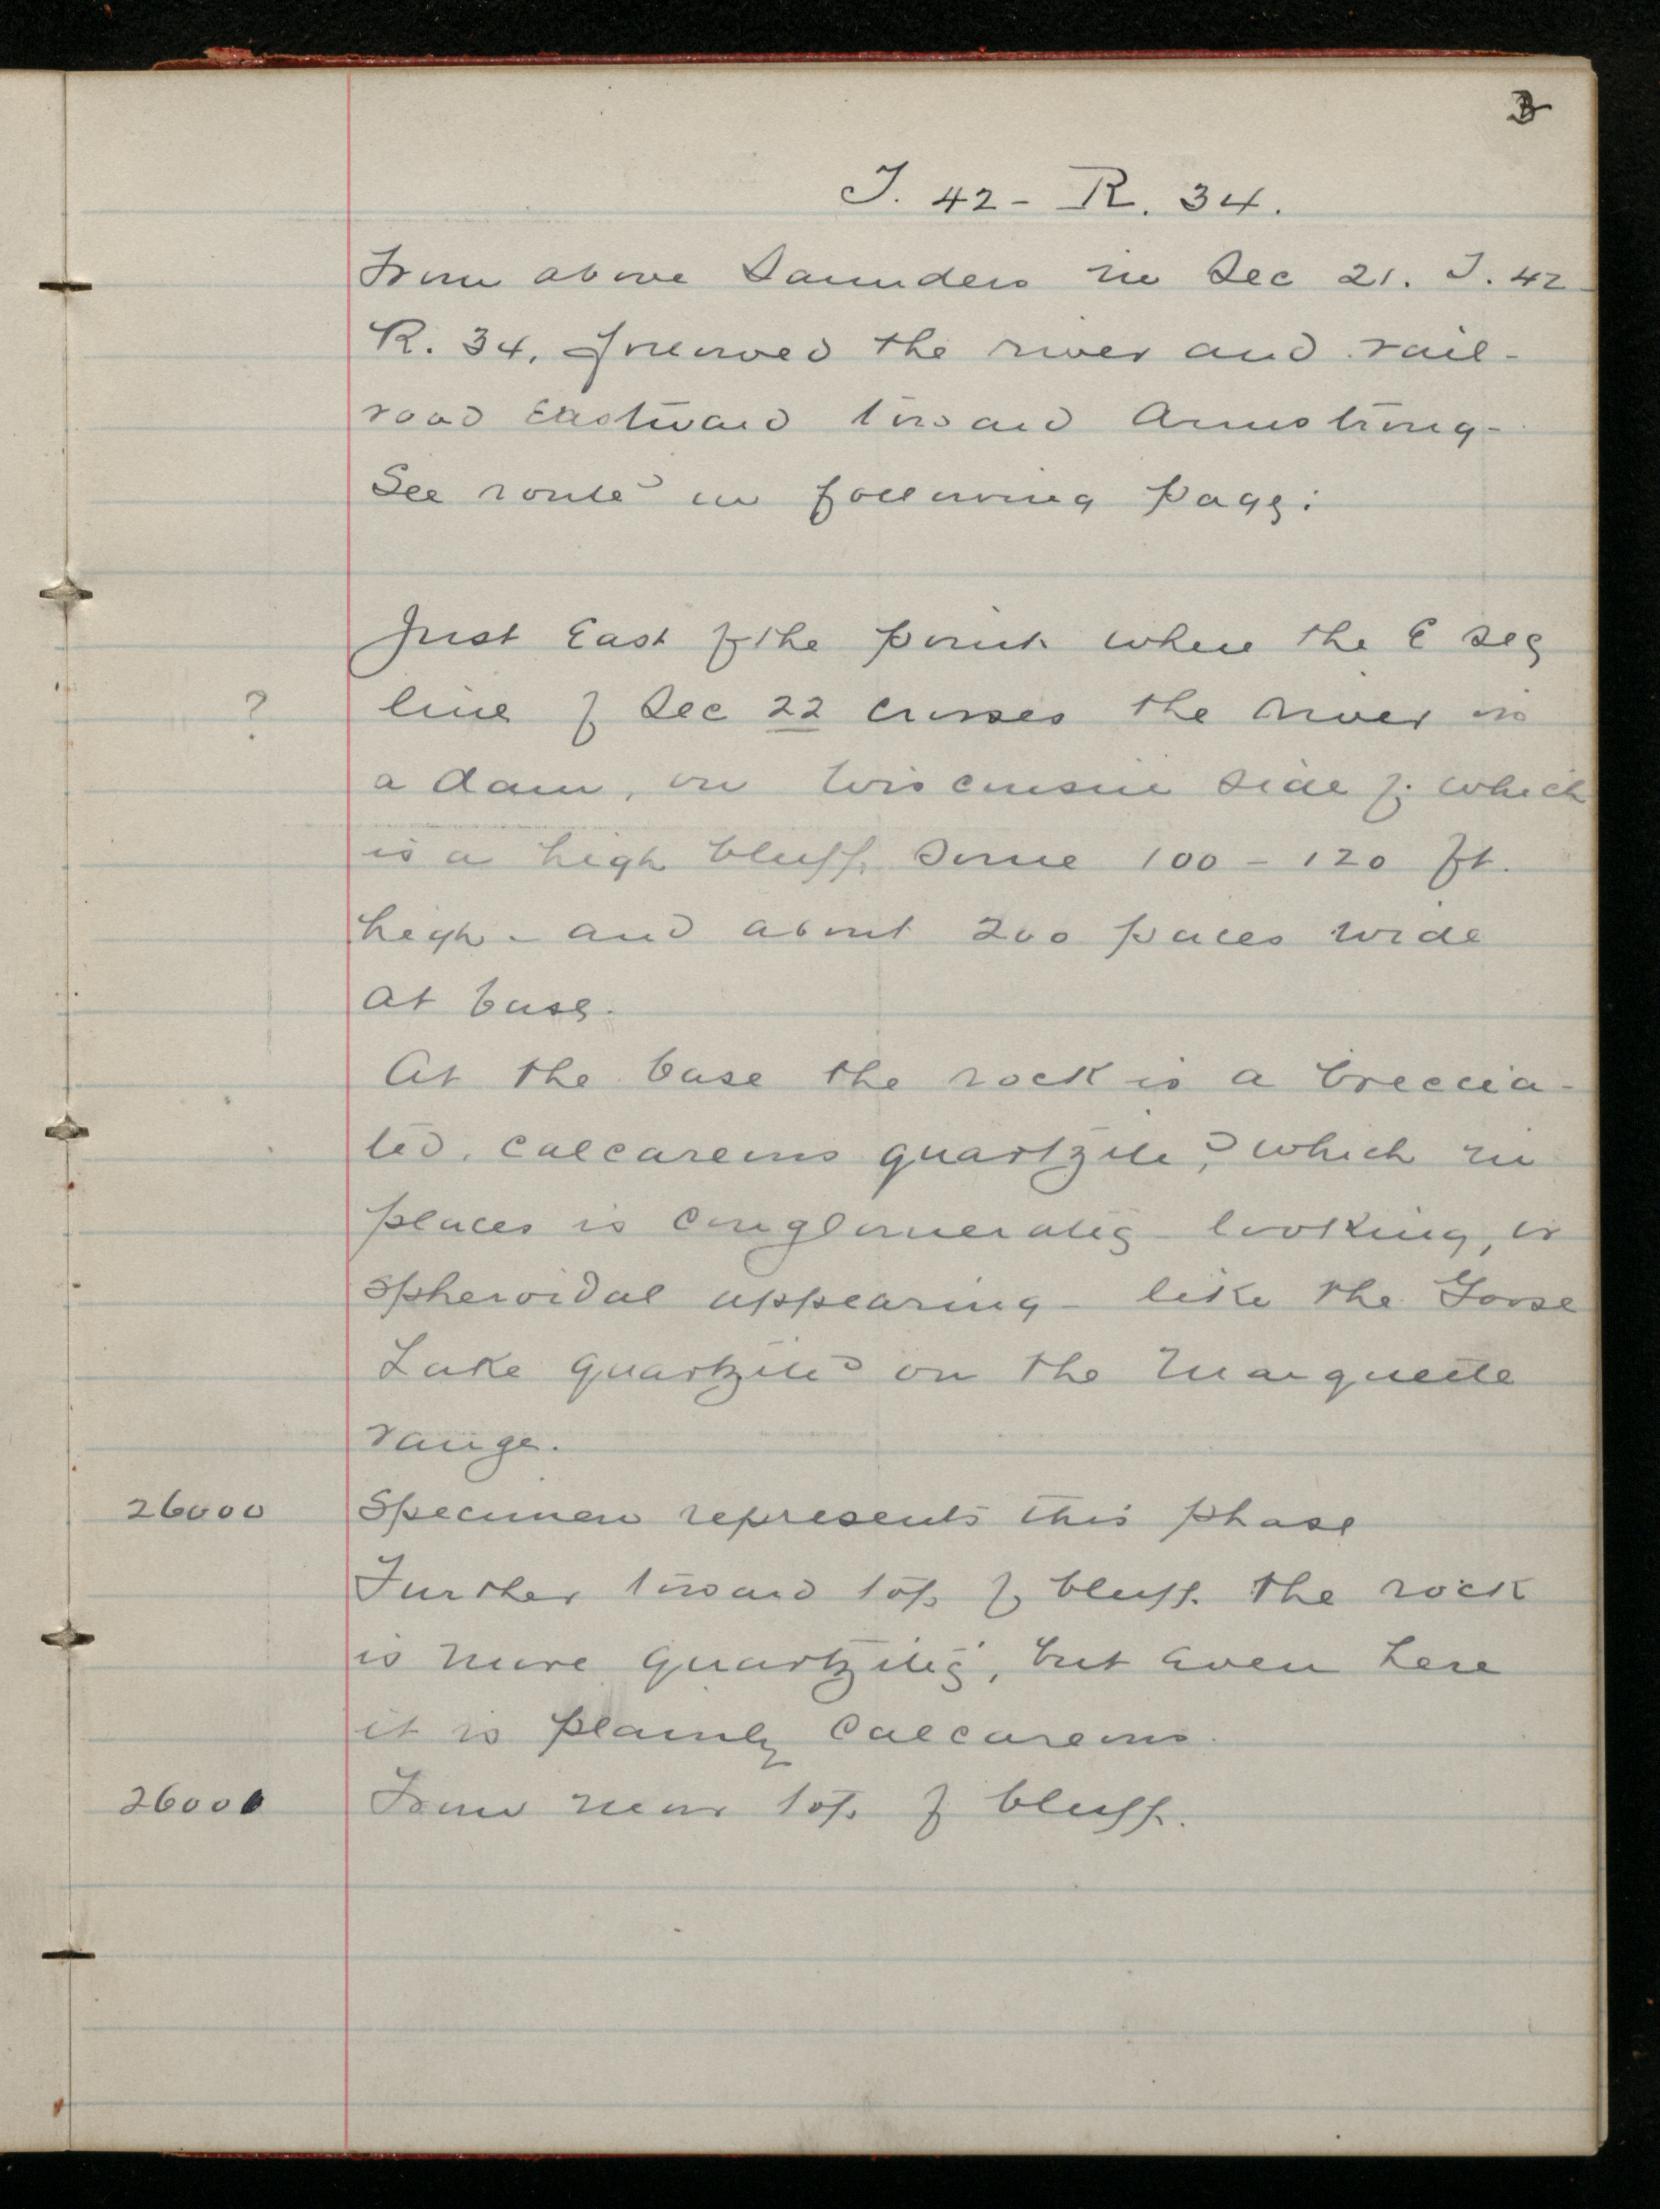 3
T. 42 - R. 34.
From above Saunders in Sec 21. T. 42
R. 34. followed the river and rail-
road Eastward toward Armstrong-
See route on following page:
Just East of the point where the E sec
? line of Sec 22 crosses the river is
a dam, on Wisconsin side of which
is a high bluff some 100 - 120 ft.
high - and about 200 paces wide
at base.
At the base the rock is a breccia-
ted, calcareous quartzite, which in
places is conglomeratic looking, or
spheroidal appearing - like the Goose
Lake quartzite on the Marquette
range.
26000 Specimen represents this phase
Further toward top of bluff the rock
is more quartzitic, but even here
it is plainly calcareous.
26001 From near top of bluff.